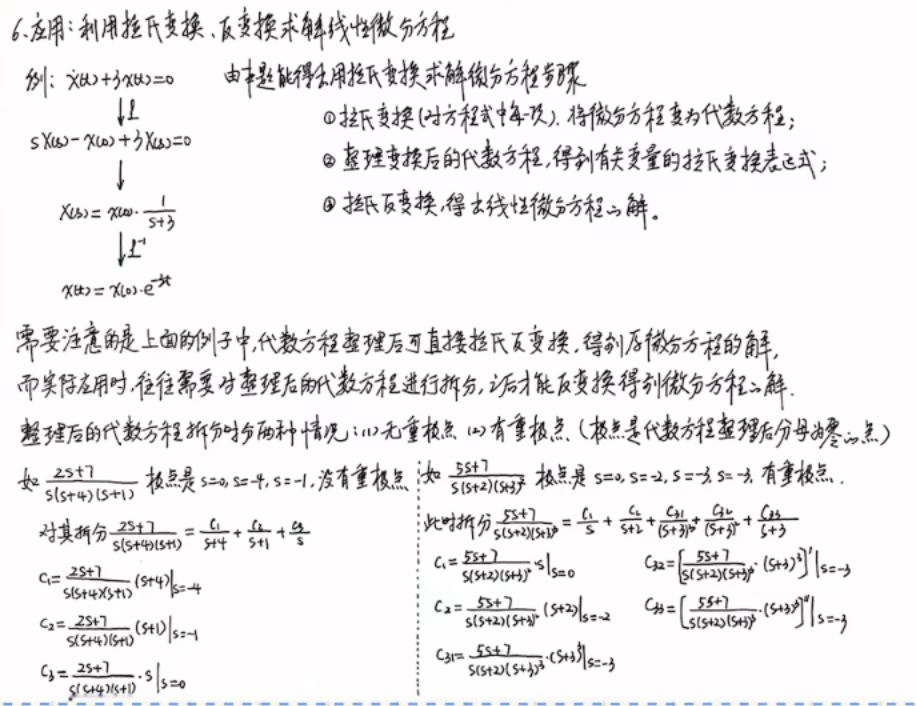 6、应用：利用拉氏变换、反变换求解线性微分方程
例：ẋ(t)+3x(t)=0
↓ℒ
sX(s)-x(0)+3X(s)=0
↓
X(s)=x(0)·1/(s+3)
↓ℒ⁻¹
x(t)=x(0)·e^{-3t}
由本题能得出用拉氏变换求解微分方程步骤
①拉氏变换(对方程式中每一项).将微分方程变为代数方程；
②整理变换后的代数方程,得到有关变量的拉氏变换表达式；
③拉氏反变换,得出线性微分方程的解。
需要注意的是上面的例子中,代数方程整理后可直接拉氏反变换,得到原微分方程的解,
而实际应用时,往往需要对整理后的代数方程进行拆分,之后才能反变换得到微分方程的解.
整理后的代数方程拆分时分两种情况：(1)无重极点 (2)有重极点.(极点是代数方程整理后分母为零的点)
如 (2s+7)/(s(s+4)(s+1)) 极点是 s=0,s=-4,s=-1,没有重极点
对其拆分 (2s+7)/(s(s+4)(s+1)) = C₁/(s+4) + C₂/(s+1) + C₃/s
C₁=(2s+7)/(s(s+4)(s+1)) (s+4)|s=-4
C₂=(2s+7)/(s(s+4)(s+1)) (s+1)|s=-1
C₃=(2s+7)/(s(s+4)(s+1)) ·s|s=0
如 (5s+7)/(s(s+2)(s+3)³) 极点是 s=0,s=-2,s=-3,s=-3,有重极点.
此时拆分 (5s+7)/(s(s+2)(s+3)³) = C₁/s + C₂/(s+2) + C₃₁/(s+3)³ + C₃₂/(s+3)² + C₃₃/(s+3)
C₁=(5s+7)/(s(s+2)(s+3)³) ·s|s=0
C₂=(5s+7)/(s(s+2)(s+3)³) (s+2)|s=-2
C₃₁=(5s+7)/(s(s+2)(s+3)³) ·(s+3)³|s=-3
C₃₂=[(5s+7)/(s(s+2)(s+3)³) ·(s+3)³]'|s=-3
C₃₃=[(5s+7)/(s(s+2)(s+3)³) ·(s+3)³]''|s=-3